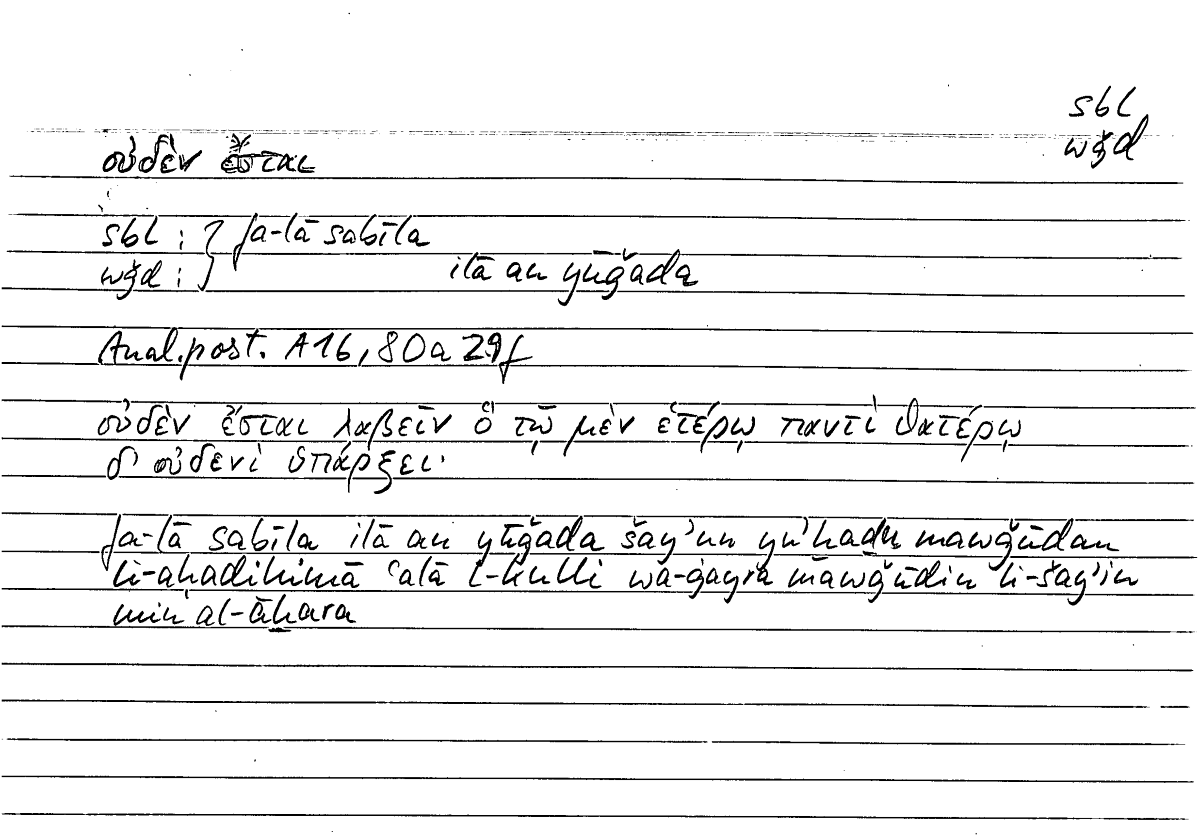 sbl
wǧd
οὐδὲν ἔσται
sbl : } fa-lā sabīla
wǧd : } ilā an yūǧada
Anal.post. A16, 80a 29f
οὐδὲν ἔσται λαβεῖν ὃ τῷ μὲν ἑτέρῳ παντὶ θατέρῳ
δ' οὐδενὶ ὑπάρξει·
fa-lā sabīla ilā an yūǧada šay'un yu'ḫaḏu mawǧūdan
li-aḥadihimā ʿalā l-kulli wa-ġayra mawǧūdin li-šay'in
min al-āḫara